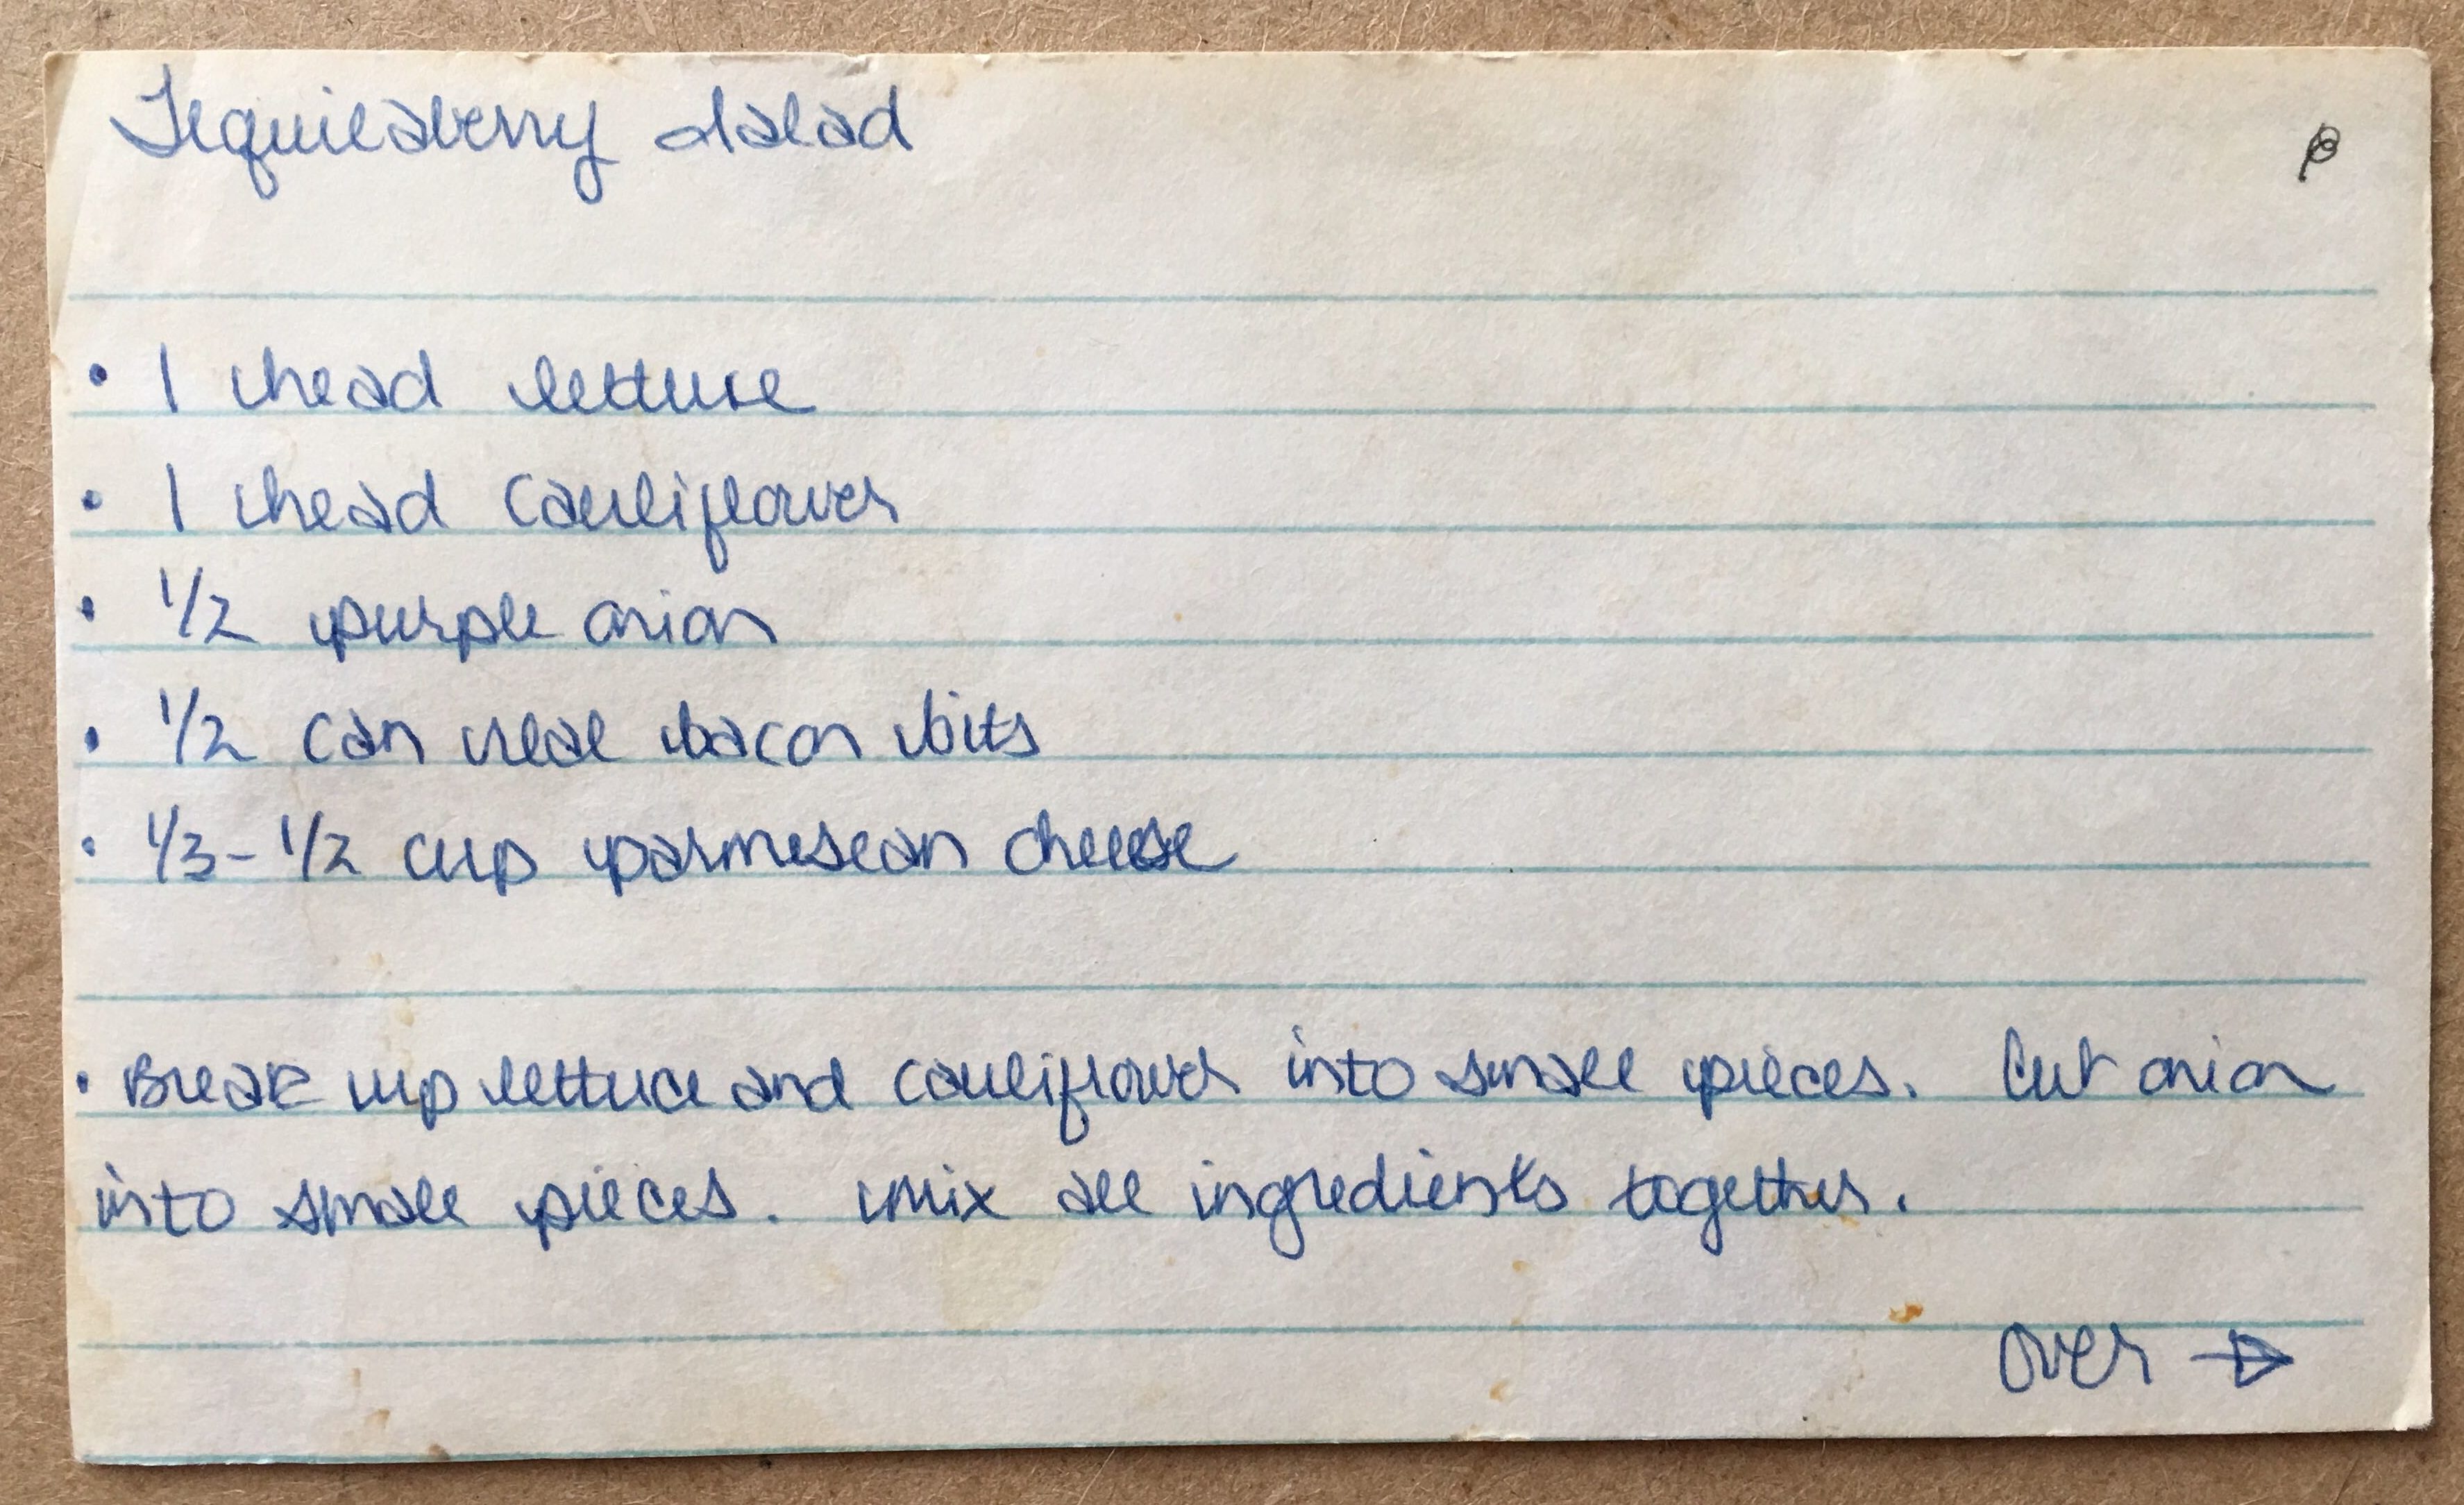 Tequilaberry Salad
• 1 head lettuce
• 1 head cauliflower
• 1/2 purple onion
• 1/2 can real bacon bits
• 1/3 - 1/2 cup parmesean cheese
• Break up lettuce and cauliflower into small pieces. Cut onion
into small pieces. Mix all ingredients together.
over →